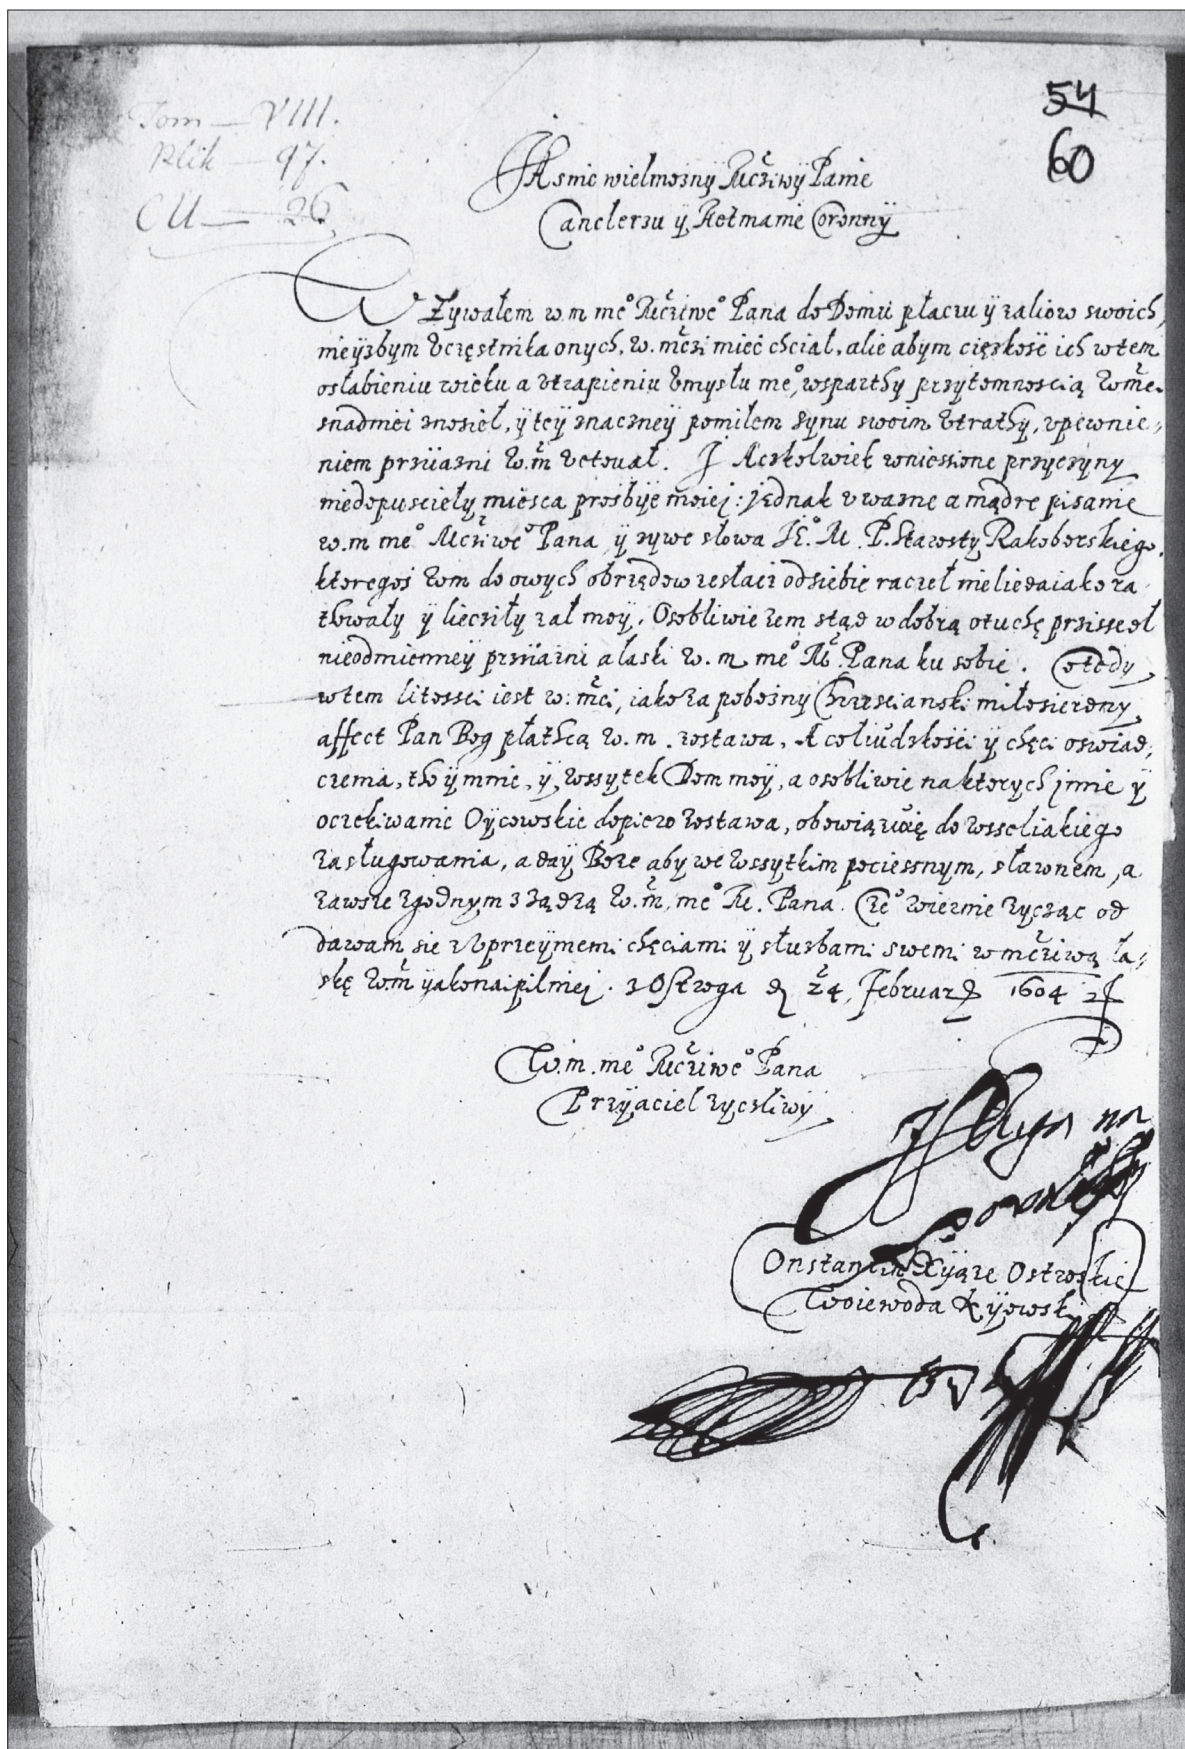 Tom — VIII.
Plik — 97.
CU — 26
54
60
JAsnie wielmozny Mczıwy Panie
Canclerzu ÿ Hetmanie Coronnÿ
WZywałem w.m me° Mcziwe° Pana do Domu płaczu ÿ zaliow swoich,
nieÿzbym vczęstnika onych, w.mczi mieć chciał, alie abym cięszkość ich wtem
osłabieniu wieku a vtrapieniu vmysłu me°, wsparthy przytomnoscią wm̃e.
snadniei znosieł, ÿ teÿ znaczneÿ pomiłem synu swoim vtrathy, vpewnie,
niem prziiazni w.m̃ vctował. J Aczkolwiek wniessione przyczyny
niedopuscieły miesca prosbÿe moiej: jednak vwazne a mądre pisanie
w.m me° Mcziwe° Pana ÿ zywe słowa JE°. M. P. Starosty Rakoborskiego,
ktoregoś wm do owych obrzędow zesłaci odsiebie raczeł nieliedaiako za
thrwały ÿ lieczıły zal moÿ. Osobliwie zem stąd w dobrą otuchę prziszedł
nieodmienneÿ prziiazni a łaski w.m me° M. Pana ku sobie. Cotedy
wtem litossci iest w.mći, iako za pobozny Chrzescianski miłosierdny
affect Pan Bog płathcą w.m. zostawa, A coliudzkości ÿ chęci oswiad,
czenia, thoÿmnie, ÿ, wssytek Dom moÿ, a osobliwie naktorych jmie ÿ
oczekiwanie Oÿcowskie dopiero zostawa, obowiązuię do wsseliakiego
zasługowania, a daÿ Boze aby we wssytkim pociessnym, sławnem, a
zawsze zgodnym z ządzą w.m̃, me° M. Pana. Cze° wiernie zycząc od
dawam sie zvprzeÿmemi chęciami ÿ słuzbami swemi w mcziwą ła,
skę wm̃ ÿakonaipilniej. z Ostroga d 24. Februarÿ 1604
W.m. me° Mcziwe° Pana
Przÿaciel zyczliwy
Onstantin Xÿąze Ostroskie
Woiewoda Kÿowsk